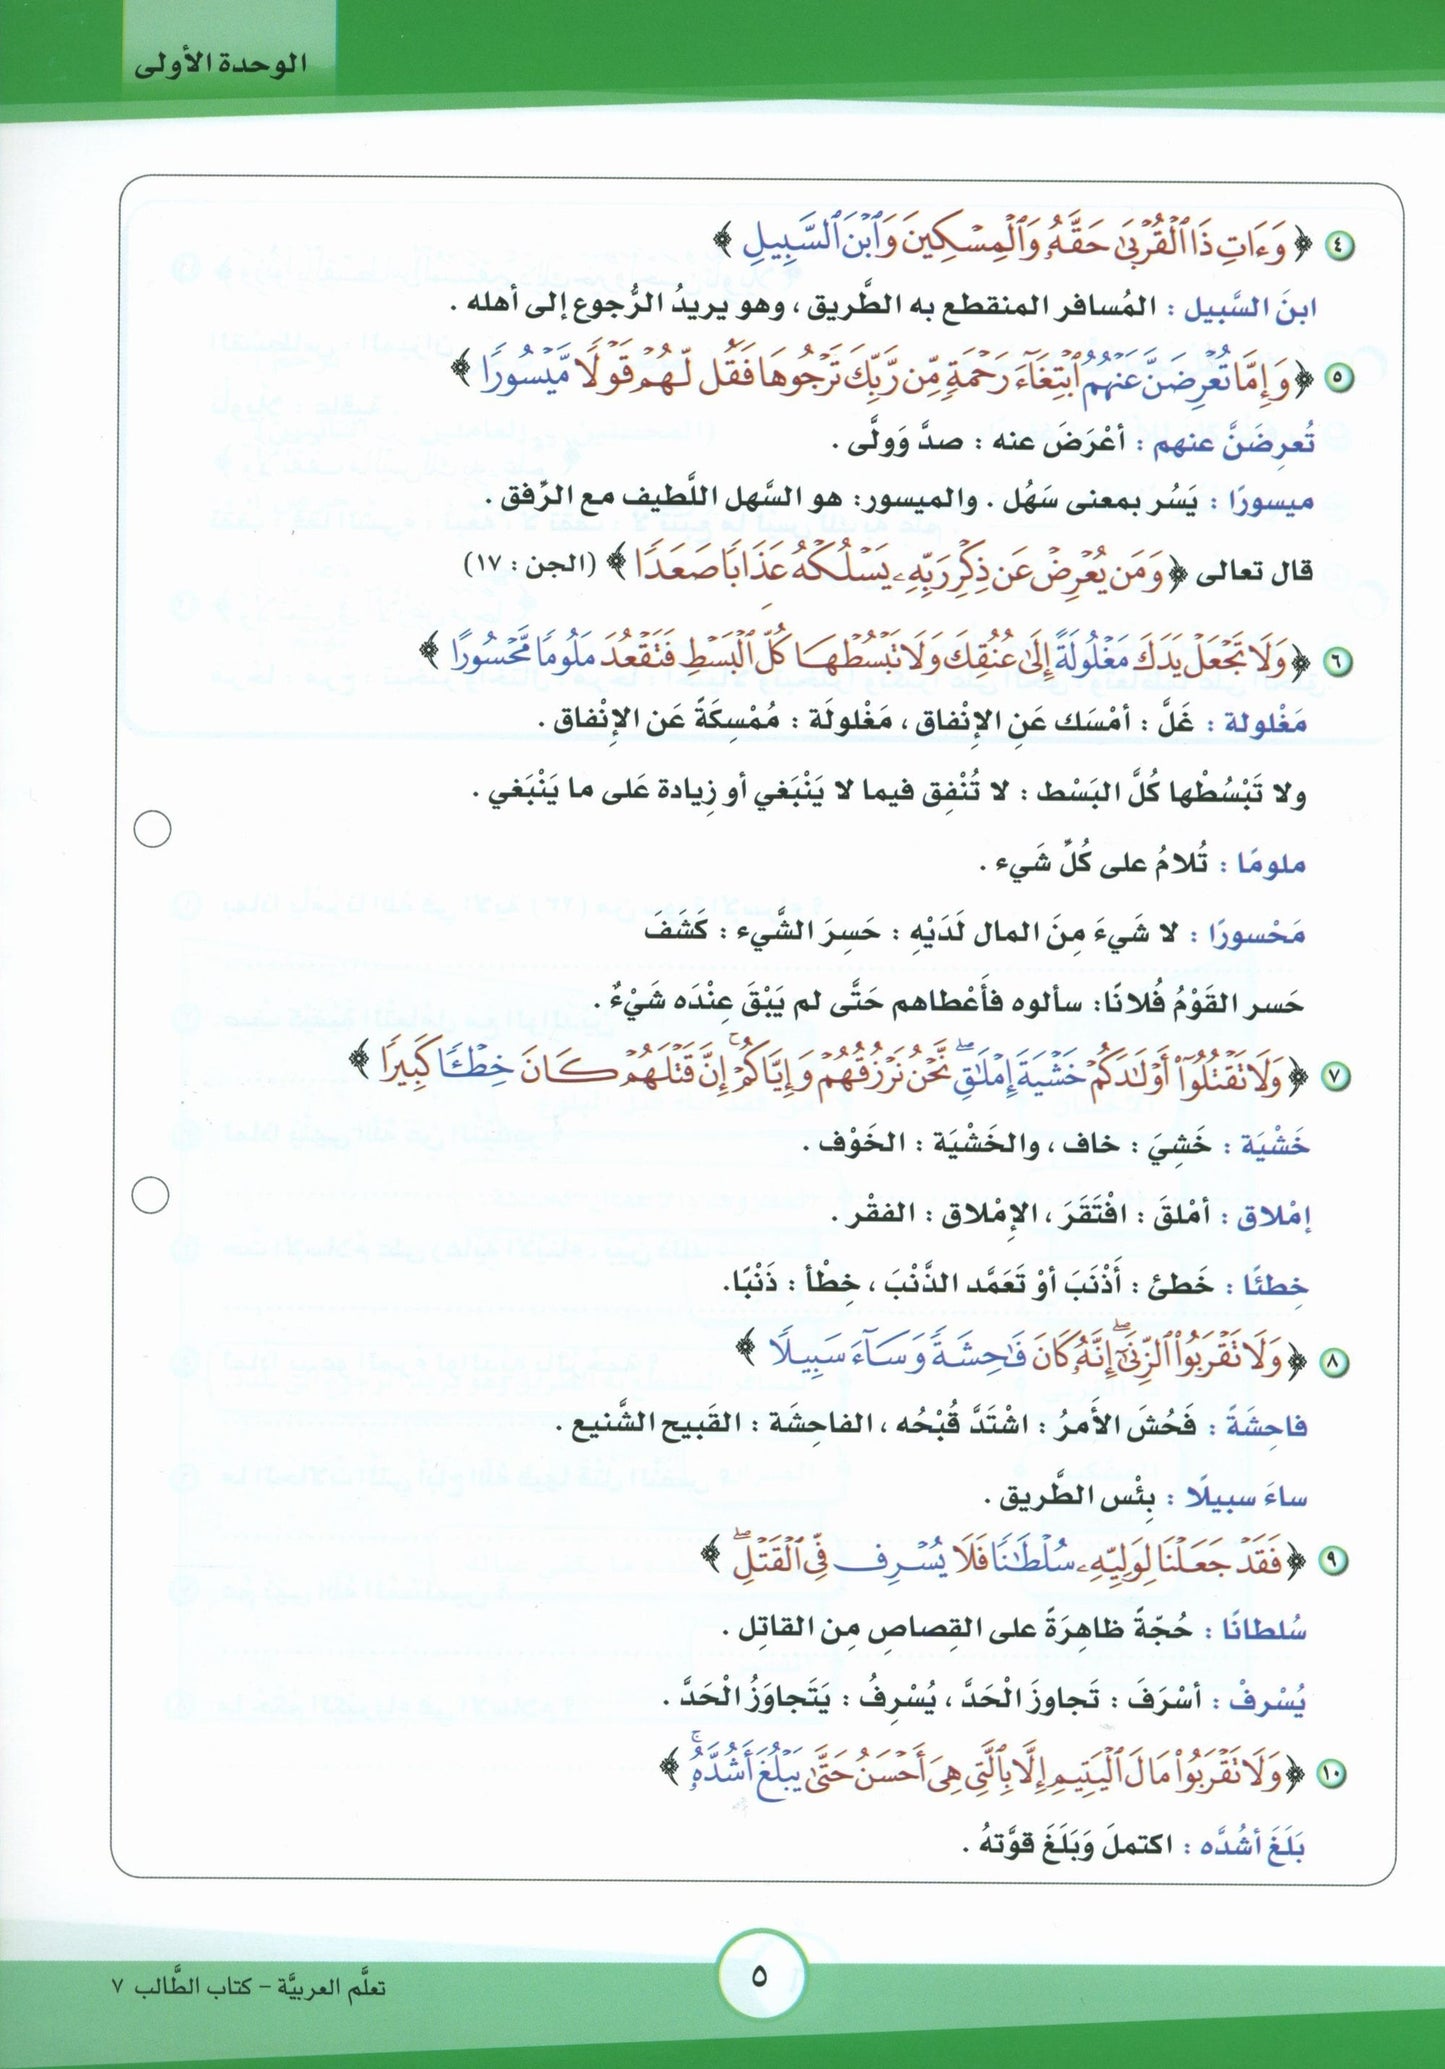 الوحدة الأولى
٤ ﴿ وَءَاتِ ذَا ٱلۡقُرۡبَىٰ حَقَّهُۥ وَٱلۡمِسۡكِينَ وَٱبۡنَ ٱلسَّبِيلِ ﴾
ابنَ السَّبيل : المُسافر المنقطع به الطَّريق ، وهو يريدُ الرُّجوع إلى أهله .
٥ ﴿ وَإِمَّا تُعۡرِضَنَّ عَنۡهُمُ ٱبۡتِغَآءَ رَحۡمَةٖ مِّن رَّبِّكَ تَرۡجُوهَا فَقُل لَّهُمۡ قَوۡلٗا مَّيۡسُورٗا ﴾
تُعرِضَنَّ عنهم : أعْرَضَ عنه : صدَّ وَولَّى .
ميسورًا : يَسُر بمعنى سَهُل . والميسور: هو السَّهل اللَّطيف مع الرِّفق .
قال تعالى ﴿ وَمَن يُعۡرِضۡ عَن ذِكۡرِ رَبِّهِۦ يَسۡلُكۡهُ عَذَابٗا صَعَدٗا ﴾ (الجن : ١٧)
٦ ﴿ وَلَا تَجۡعَلۡ يَدَكَ مَغۡلُولَةً إِلَىٰ عُنُقِكَ وَلَا تَبۡسُطۡهَا كُلَّ ٱلۡبَسۡطِ فَتَقۡعُدَ مَلُومٗا مَّحۡسُورًا ﴾
مَغْلولة : غَلَّ : أمْسَك عَنِ الإنْفاق ، مَغْلولَة : مُمْسِكَةً عَن الإنْفاق .
ولا تَبْسُطْها كُلَّ البَسْط : لا تُنْفِق فيما لا يَنْبَغي أو زِيادة عَلى ما يَنْبَغي .
ملومًا : تُلامُ على كُلِّ شَيء .
مَحْسورًا : لا شَيءَ مِنَ المال لَدَيْهِ : حَسِرَ الشَّيء : كَشَفَ
حَسر القَوْمُ فُلانًا: سألوه فأعْطاهم حَتَّى لم يَبْقَ عِنْدَه شَيْءٌ .
٧ ﴿ وَلَا تَقۡتُلُوٓاْ أَوۡلَٰدَكُمۡ خَشۡيَةَ إِمۡلَٰقٖۖ نَّحۡنُ نَرۡزُقُهُمۡ وَإِيَّاكُمۡۚ إِنَّ قَتۡلَهُمۡ كَانَ خِطۡـٔٗا كَبِيرٗا ﴾
خَشْيَة : خَشِيَ : خاف ، والخَشْيَة : الخَوْف .
إمْلاق : أمْلقَ : افْتَقَرَ ، الإمْلاق : الفقْر .
خِطئًا : خَطئ : أذْنَبَ أوْ تَعَمَّد الذَّنْبَ ، خِطْأ : ذَنْبًا.
٨ ﴿ وَلَا تَقۡرَبُواْ ٱلزِّنَىٰٓۖ إِنَّهُۥ كَانَ فَٰحِشَةٗ وَسَآءَ سَبِيلٗا ﴾
فاحِشَةً : فَحُشَ الأَمرُ : اشْتَدَّ قُبْحُه ، الفاحِشَة : القَبيح الشَّنيع .
ساءَ سبيلًا : بِئْس الطَّريق .
٩ ﴿ فَقَدۡ جَعَلۡنَا لِوَلِيِّهِۦ سُلۡطَٰنٗا فَلَا يُسۡرِف فِّي ٱلۡقَتۡلِۖ ﴾
سُلطانًا : حُجّةً ظاهِرَةً على القِصاصِ مِن القاتِل .
يُسْرفْ : أسْرَفَ : تَجاوزَ الْحَدَّ ، يُسْرِفُ : يَتَجاوَزُ الْحَدَّ .
١٠ ﴿ وَلَا تَقۡرَبُواْ مَالَ ٱلۡيَتِيمِ إِلَّا بِٱلَّتِي هِيَ أَحۡسَنُ حَتَّىٰ يَبۡلُغَ أَشُدَّهُۥۚ ﴾
بَلَغَ أشُدَّه : اكتملَ وَبَلَغَ قوَّتهُ .
٥
تعلَّم العربيَّة - كتاب الطَّالب ٧